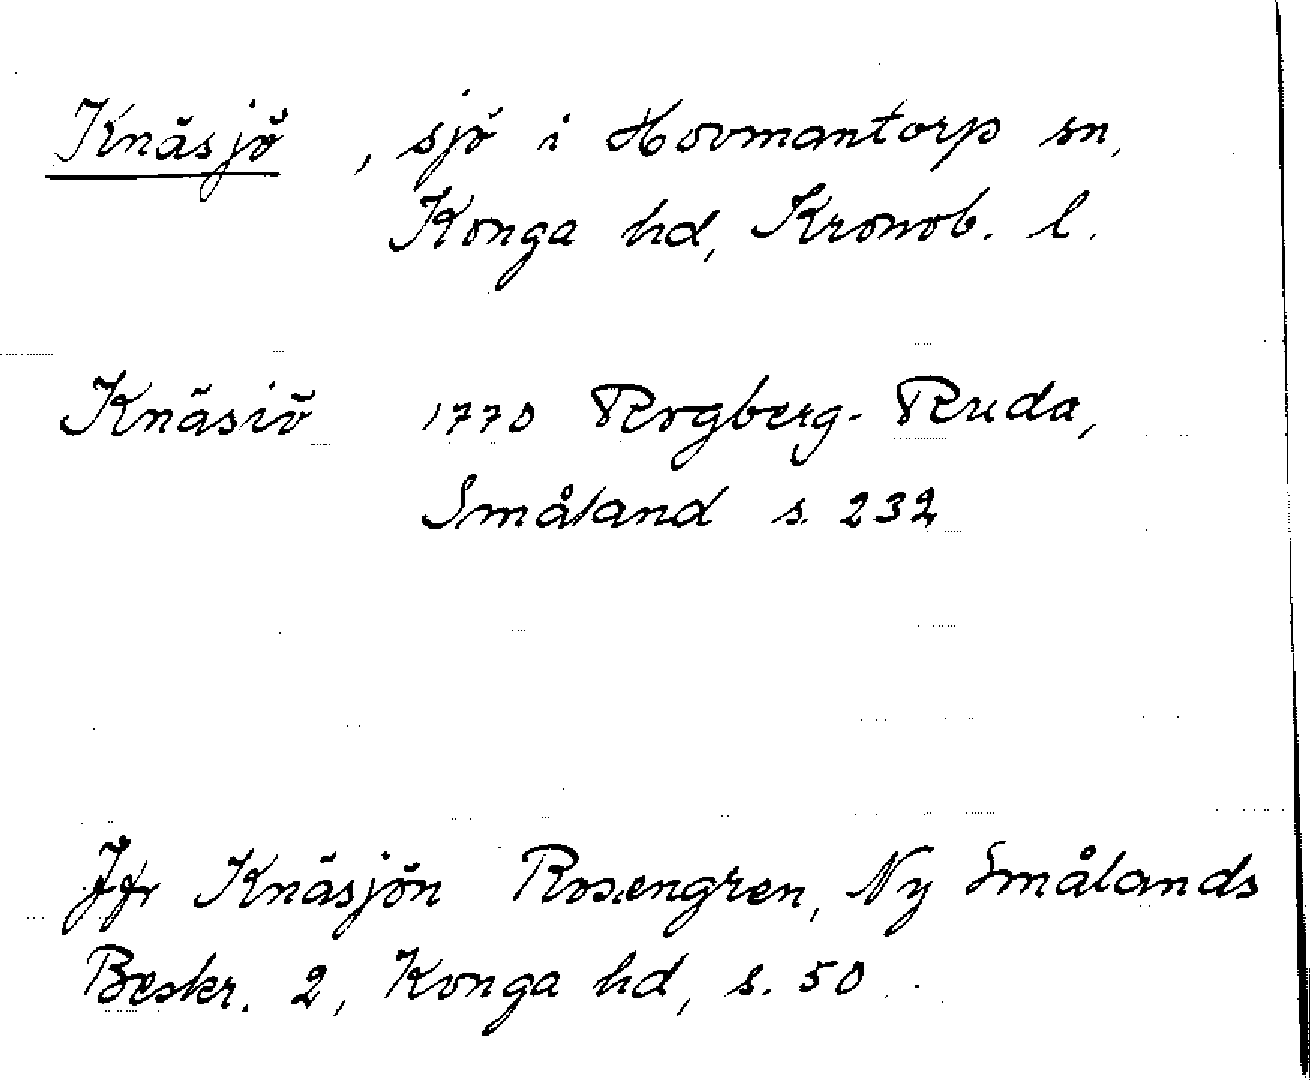 Knäsjö, sjö i Hovmantorp sn,
Konga hd, Kronob. l.
Knäsiö 1770 Rogberg-Ruda,
Småland s. 232
Jfr Knäsjön Rosengren, Ny Smålands
Beskr. 2, Konga hd, s. 50